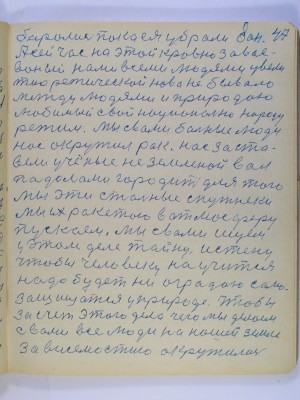 боролись пояса убрали Зон. 47
А сейчас на этой кровно завае-
ваный нами всеми людями увели
теоретической нова не бывало
между людями и природаю
любимый свой национално народу
режим. Мы с вами больные люди
нас окружил рак. нас заста-
вели учёные не земленой вал
лопатами городит для того
мы эти стальные спутнеки
мы их ракетою в атмосферу
пускаем. мы с вами ищем
у этом деле тайну. истену
чтобы человеку научится
надо будет ни оградою само-
защищатся у природе. Чтобы
за счет этого дела чего мы делоем
с вами все люди на нашей земле
зависемостию окружилас